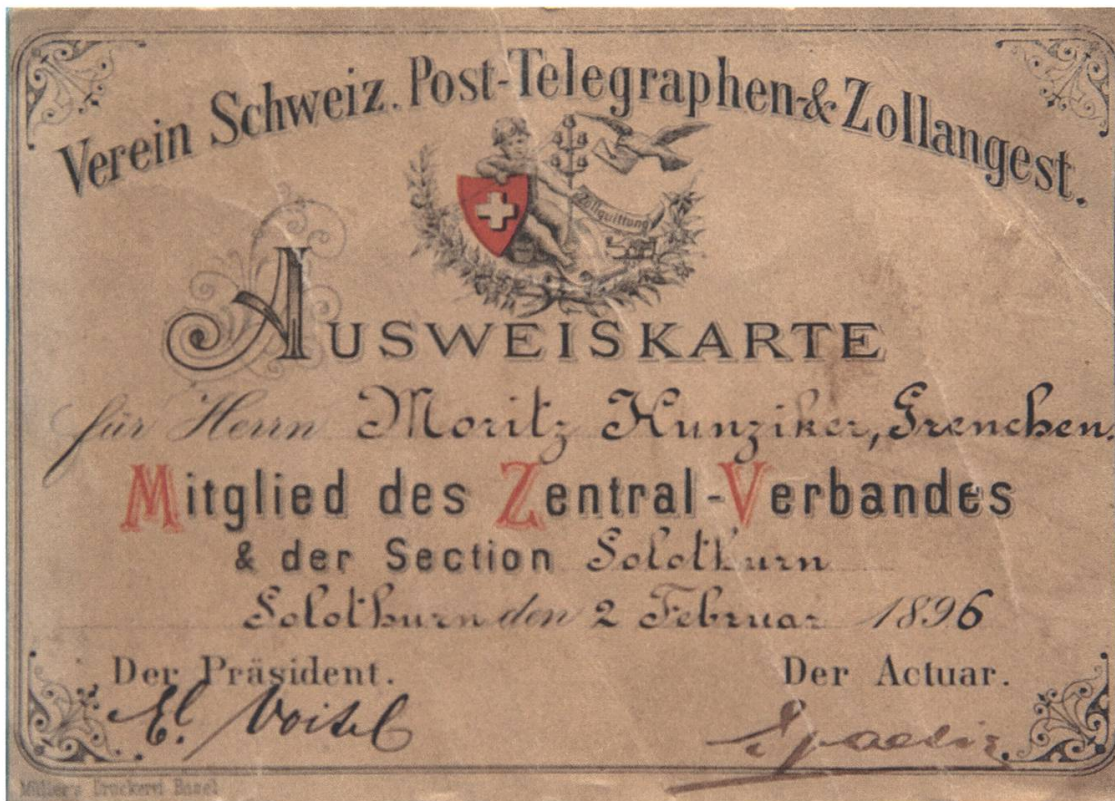 Verein Schweiz. Post-Telegraphen- & Zollangest.
Zollquittung
AUSWEISKARTE
für Herrn Moritz Hunziker, Grenchen
Mitglied des Zentral-Verbandes
& der Section Solothurn
Solothurn den 2 Februar 1896
Der Präsident. Der Actuar.
Müller's Druckerei Basel